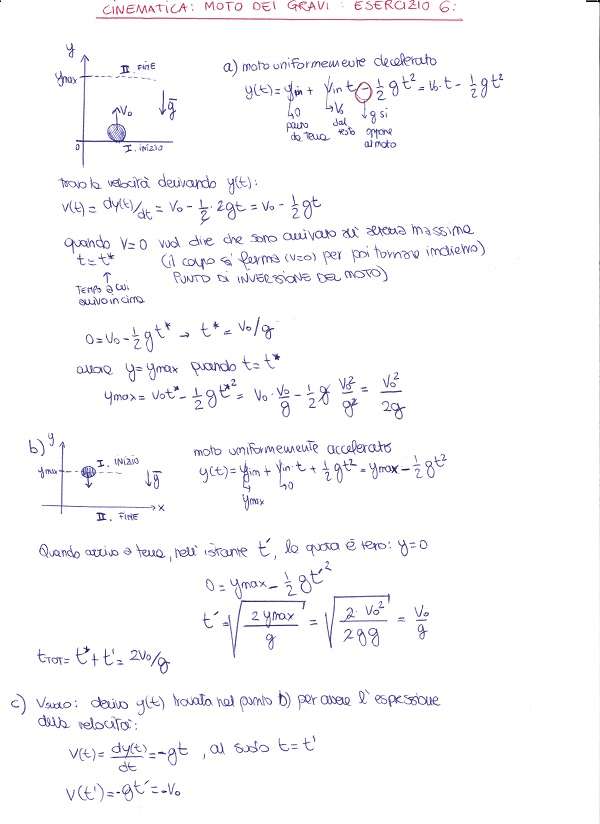 CINEMATICA: MOTO DEI GRAVI: ESERCIZIO 6:
y
ymax
II. FINE
g
V₀
0
I. INIZIO
a) moto uniformemente decelerato
y(t) = yin + Vin t - 1/2 g t² = V₀·t - 1/2 g t²
↳0 parto da terra
↳V₀ dal testo
↳g si oppone al moto
trovo la velocità derivando y(t):
V(t) = dy(t)/dt = V₀ - 1/2·2gt = V₀ - 1/2 gt
quando V=0 vuol dire che sono arrivato all'altezza massima
t = t* (il corpo si ferma (v=0) per poi tornare indietro)
↑ PUNTO DI INVERSIONE DEL MOTO)
TEMPO a cui
arrivo in cima
0 = V₀ - 1/2 g t* → t* = V₀/g
allora y = ymax quando t = t*
ymax = V₀t* - 1/2 g t*² = V₀·V₀/g - 1/2 g V₀²/g² = V₀²/2g
b) y
ymax
I. INIZIO
g
x
II. FINE
moto uniformemente accelerato
y(t) = yin + Vin·t + 1/2 g t² = ymax - 1/2 g t²
↳ymax ↳0
Quando arrivo a terra, nell'istante t', la quota è zero: y=0
0 = ymax - 1/2 g t'²
t' = √(2ymax/g) = √(2·V₀²/2gg) = V₀/g
tTOT = t* + t' = 2V₀/g
c) Vsuolo: derivo y(t) trovata nel punto b) per avere l'espressione
della velocità:
V(t) = dy(t)/dt = -gt , al suolo t = t'
V(t') = -gt' = -V₀